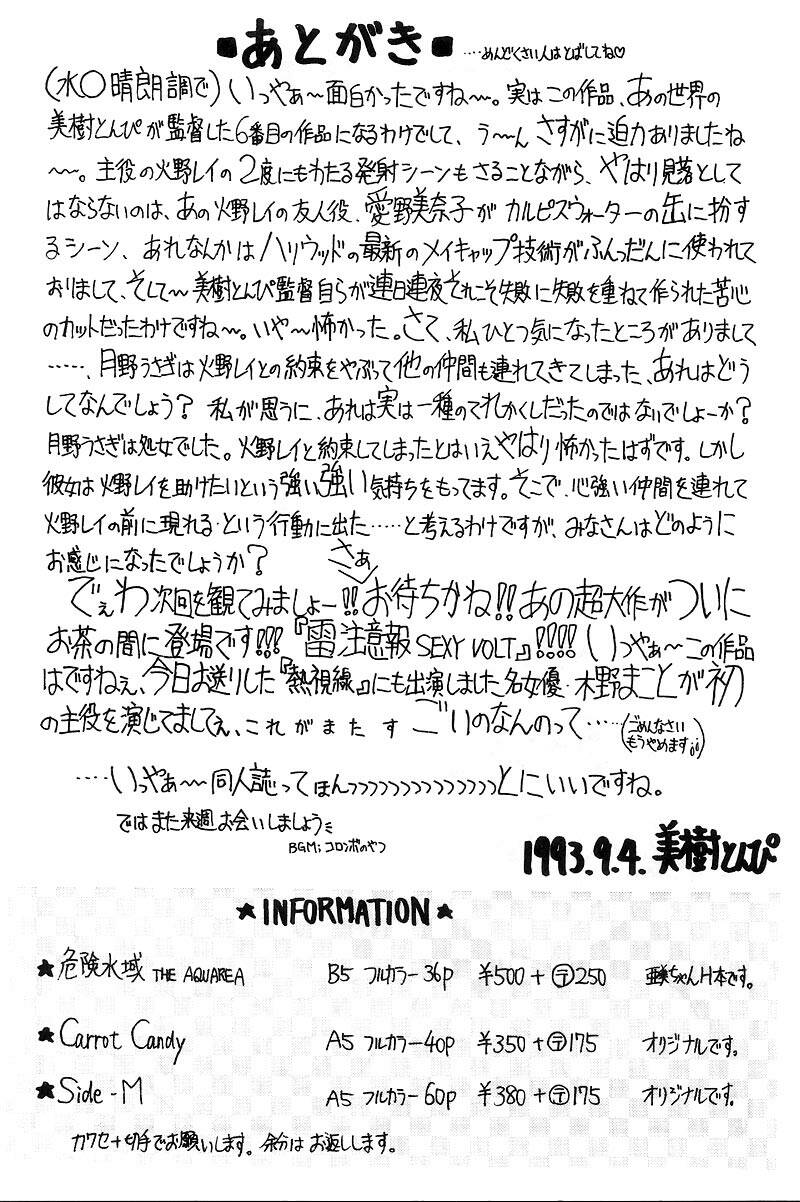 ■あとがき■ ‥‥めんどくさい人はとばしてね♡
(水○晴朗調で)いっやぁ〜面白かったですね〜。実はこの作品、あの世界の
美樹とんぴが監督した6番目の作品になるわけでして、う〜んさすがに迫力ありましたね
〜〜。主役の火野レイの2度にもわたる発射シーンもさることながら、やはり見落として
はならないのは、あの火野レイの友人役、愛野美奈子がカルピスウォーターの缶に扮す
るシーン、あれなんかはハリウッドの最新のメイキャップ技術がふんだんに使われて
おりまして、そして〜美樹とんぴ監督自らが連日連夜それこそ失敗に失敗を重ねて作られた苦心
のカットだったわけですね〜。いや〜怖かった。さて、私ひとつ気になったところがありまして
‥‥‥、月野うさぎは火野レイとの約束をやぶって他の仲間も連れてきてしまった、あれはどう
してなんでしょう? 私が思うに、あれは実は一種のてれかくしだったのではないでしょーか?
月野うさぎは処女でした。火野レイと約束してしまったとはいえやはり怖かったはずです。しかし
彼女は火野レイを助けたいという強い強い気持ちをもってます。そこで、心強い仲間を連れて
火野レイの前に現れる・という行動に出た‥‥‥と考えるわけですが、みなさんはどのように
お感じになったでしょうか?
さぁ
でぇわ次回を観てみましょー!!お待ちかね!!あの超大作がついに
お茶の間に登場です!!!『雷注意報SEXY VOLT』!!!!いっやぁ〜この作品
はですねぇ、今日お送りした『熱視線』にも出演しました名女優・木野まことが初
の主役を演じてましてぇ、これがまたすごいのなんのって‥‥‥(ごめんなさい
もうやめます)
‥‥いっやぁ〜〜同人誌ってほんっっっっっっっっっっっっっっとにいいですね。
ではまた来週お会いしましょう
BGM;コロンボのやつ
1993.9.4. 美樹とんぴ
★INFORMATION★
★危険水域 THE AQUAREA B5 フルカラー36p ¥500+〒250 亜美ちゃんH本です。
★Carrot Candy A5 フルカラー40p ¥350+〒175 オリジナルです。
★Side-M A5 フルカラー60p ¥380+〒175 オリジナルです。
カワセ+切手でお願いします。余分はお返しします。